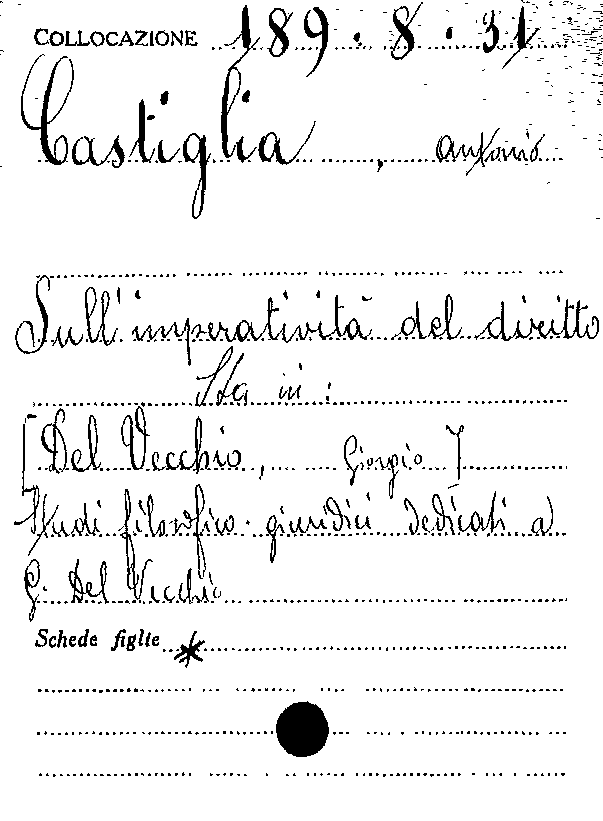 COLLOCAZIONE 189.8.31
Castiglia, Antonio
Sull'imperatività del diritto
Sta in:
[Del Vecchio, Giorgio]
Studi filosofico-giuridici dedicati a
G. Del Vecchio
Schede figlie *